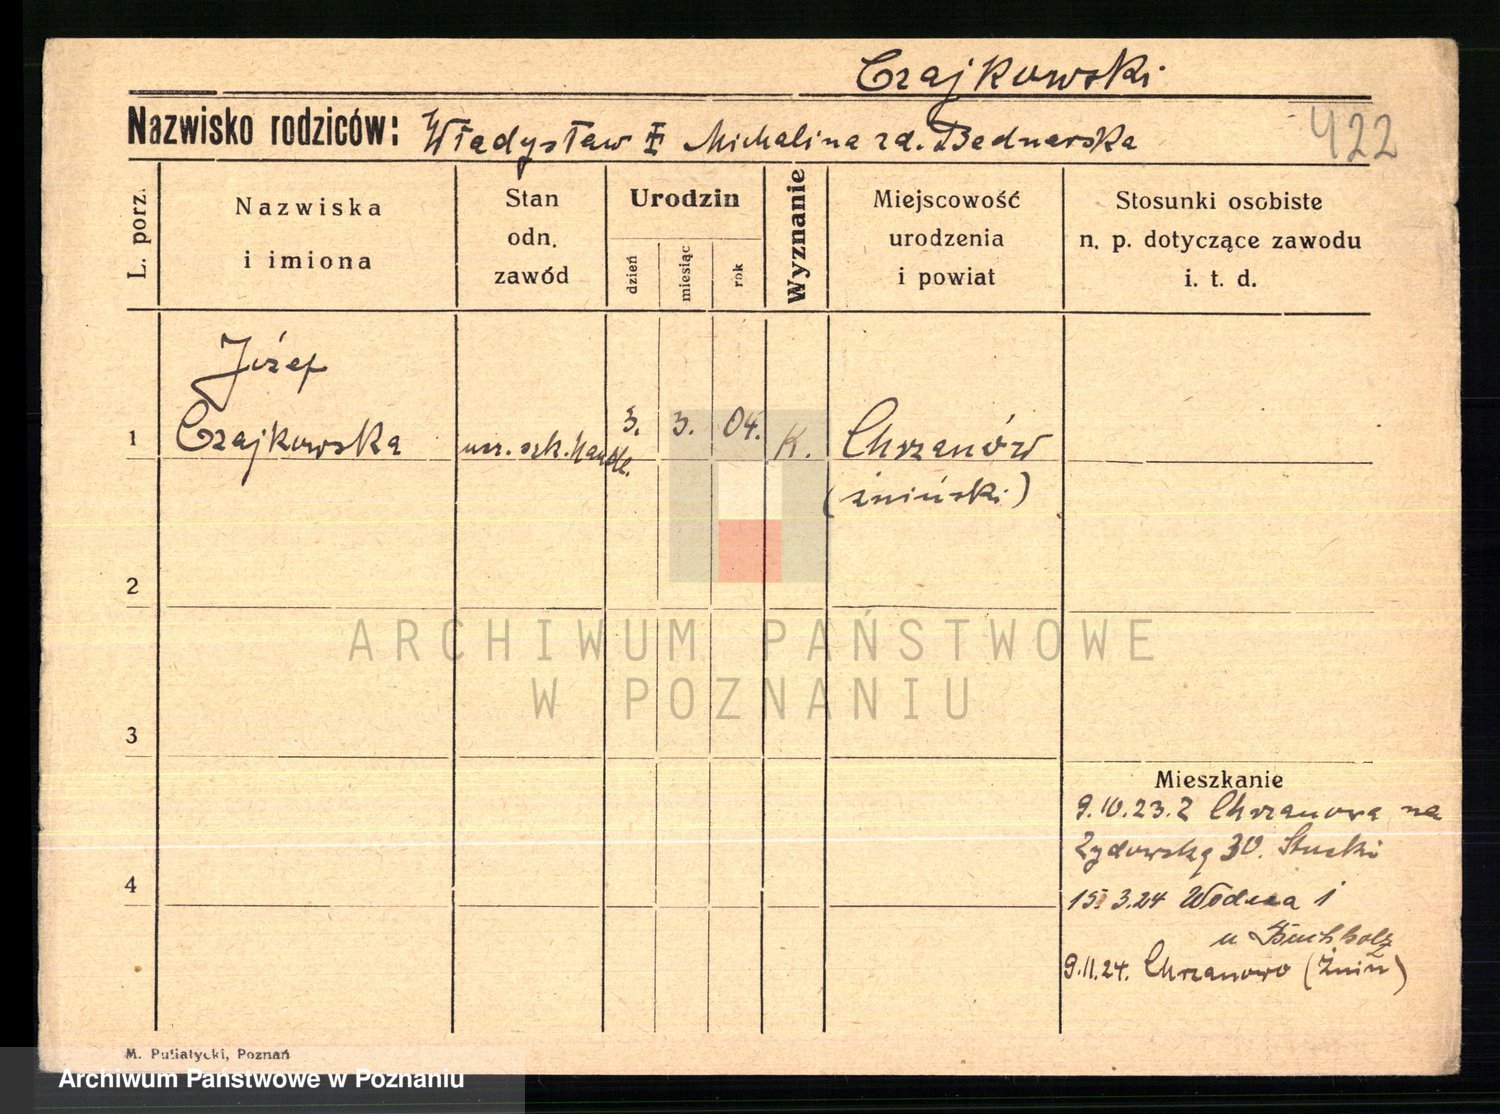 Czajkowski
Nazwisko rodziców: Władysław Michalina zd. Bednarska
422
L. porz.
Nazwiska
i imiona
Stan
odn.
zawód
Urodzin
dzień
miesiąc
rok
Wyznanie
Miejscowość
urodzenia
i powiat
Stosunki osobiste
n. p. dotyczące zawodu
i. t. d.
Józef
1 Czajkowska ucz. szk. handl. 3. 3. 04. K. Chrzanów
(żniński)
2
ARCHIWUM PAŃSTWOWE
W POZNANIU
3
Mieszkanie
9.10.23. z Chrzanowa na
Żydowską 30.
4
15 3.24 Wodna 1
u Buchholz
9.11.24. Chrzanowo (Żnin)
M. Putiatycki, Poznań
Archiwum Państwowe w Poznaniu